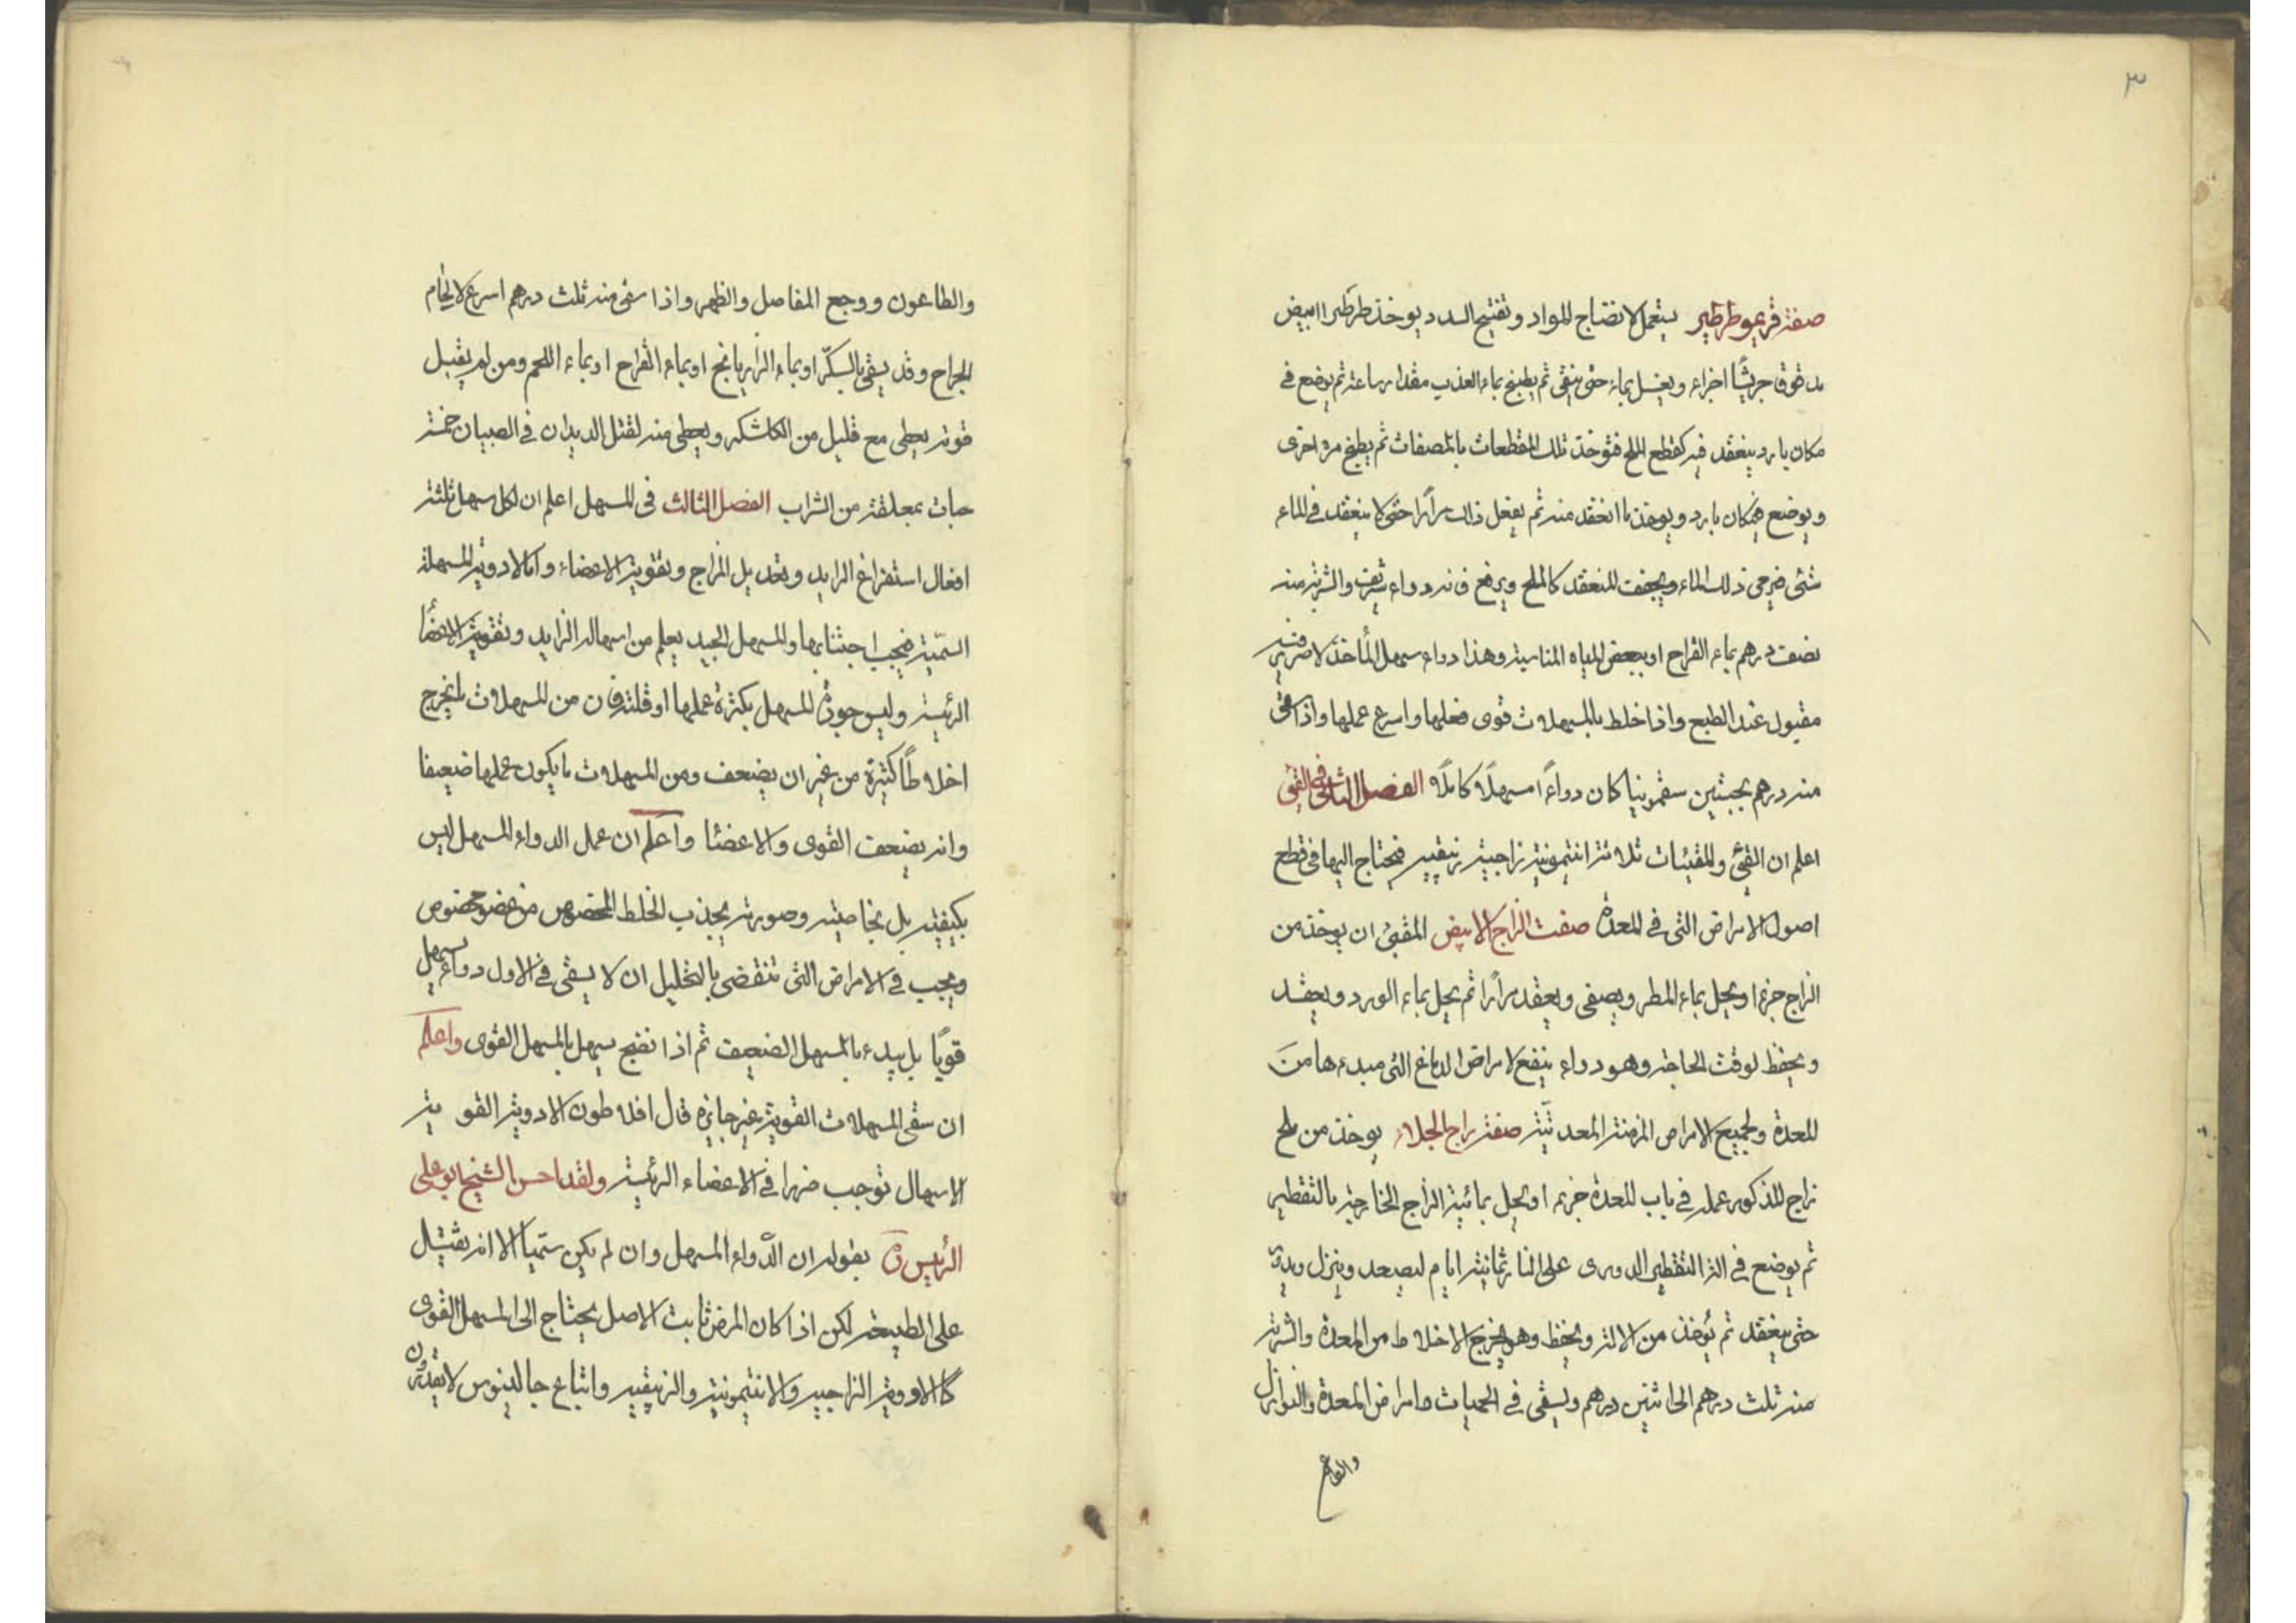 ٣
صفة قريموطرطير يستعمل لانضاج المواد وتفتيح السدد يوخذ طرطيرا ابيض
مدقوق جريشًا اجزاء ويغسل بماء حتى ينقى ثم يطبخ بماء العذب مقدار ساعة ثم يوضع في
مكان بارد ينعقد فيه كقطع الملح فتوخذ تلك القطعات بالمصفات ثم يطبخ مرة اخرى
ويوضع فيمكان بارد ويوخذ ما انعقد منه ثم يفعل ذالك مرارًا حتى لا ينعقد في الماء
شئ فيرمى ذلك الماء ويجفف المنعقد كالملح ويرفع فانه دواء شريف والشربة منه
نصف درهم بماء القراح او ببعض المياه المناسبة وهذا دواء سهل المأخذ لا ضرر فيه
مقبول عند الطبع واذا خلط بالمسهلات قوى فعلها واسرع عملها واذا سقى
منه درهم بحبتين سقمونيا كان دواءً مسهلًا كاملًا الفصل الثانى فى القئ
اعلم ان القئ والمقيئات ثلاثة انتيمونية زاجية زيبقيه فيحتاج اليها فى قطع
اصول الامراض التى فى المعدة صفت الزاج الابيض المقيئ ان يوخذ من
الزاج جزءا ويحل بماء المطر ويصفى ويعقد مرارًا ثم يحل بماء الورد ويعقد
ويحفظ لوقت الحاجة وهو دواء ينفع لامراض الدماغ التى مبدءها من
المعدة ولجميع الامراض المزمنة المعدئية صفة زاج الجلاء يوخذ من ملح
زاج المذكور عمله في باب المعدة جزء او يحل بمائية الزاج الخارجة بالتقطير
ثم يوضع في الة التقطير الدورى على النار ثمانية ايام ليصعد وينزل ويدبر
حتى ينعقد ثم يؤخذ من الالة ويحفظ وهو يخرج الاخلاط من المعدة والشربة
منه ثلث درهم الى اثنين درهم ويسقى في الحميات وامراض المعدة والنوازل
والطاعون
والطاعون ووجع المفاصل والظهر واذا سقى منه ثلث درهم اسرع لالحام
الجراح وقد يسقى بالسكّر او بماء الرازيانج او بماء القراح او بماء اللحم ومن لم يقبل
قوته يعطى مع قليل من الكاشكه ويعطى منه لقتل الديدان في الصبيان خمسة
حبات بمعلقة من الشراب الفصل الثالث فى المسهل اعلم ان لكل مسهل ثلثة
افعال استفراغ الزايد وتعديل المزاج وتقوية الاعضاء واما الادوية المسهلة
السّمّية فيجب اجتنابها والمسهل الجيد يعلم من اسهاله الزايد وتقوية الاعضاء
الرئيسة وليس جودة المسهل بكثرة عملها او قلته فان من المسهلات ما يخرج
اخلاطًا كثيرة من غير ان يضعف ومن المسهلات ما يكون عملها ضعيفا
وانه يضعف القوى والاعضاء واعلم ان عمل الدواء المسهل ليس
بكيفيته بل بخاصيته وصورته يجذب الخلط المخصوص من عضو مخصوص
ويجب في الامراض التى تنقضى بالتحليل ان لا يسقى في الاول دواء مسهل
قويًا بل يبدء بالمسهل الضعيف ثم اذا نضج يسهل بالمسهل القوى واعلم
ان سقى المسهلات القوية غير جايزه قال افلاطون الادوية القوية
الاسهال توجب ضررا في الاعضاء الرئيسة ولقد احسن الشيخ ابو على
الرئيس بقوله ان الدّواء المسهل وان لم يكن سميّا الا انه ثقيل
على الطبيعة لكن اذا كان المرض ثابت الاصل يحتاج الى المسهل القوى
كالادوية الزاجيه والانتيمونية والزيبقيه واتباع جالينوس لا يقدرون